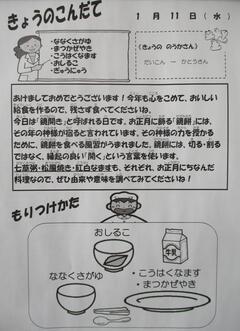 きょうのこんだて
1月11日(水)
・ななくさがゆ
・まつかぜやき
・こうはくなます
・おしるこ
・ぎゅうにゅう
(きょうの のうかさん)
だいこん ― かとうさん
あけましておめでとうございます!今年も心をこめて、おいしい
給食を作るので、残さず食べてくださいね。
今日は「鏡開き」と呼ばれる日です。お正月に飾る「鏡餅」には、
その年の神様が宿ると言われています。その神様の力を授かる
ために、鏡餅を食べる風習がうまれました。鏡餅には、切る・割る
ではなく、縁起の良い「開く」という言葉を使います。
七草粥・松風焼き・紅白なますも、それぞれ、お正月にちなんだ
料理なので、ぜひ由来や意味を調べてみてくださいね!
もりつけかた
おしるこ
牛乳
ななくさがゆ
・こうはくなます
・まつかぜやき